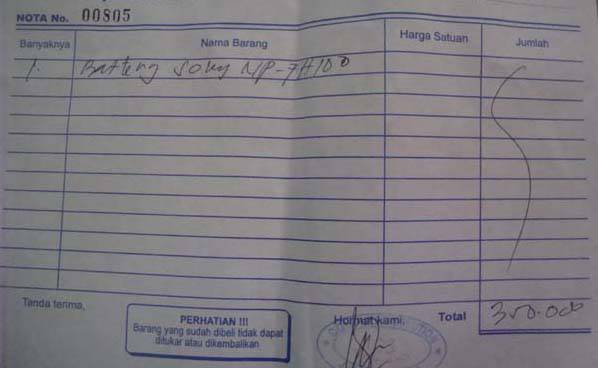 NOTA No. 00805
Banyaknya Nama Barang Harga Satuan Jumlah
1. Battery Sony NP-FH100
Tanda terima, Hormat kami, Total 350.000
PERHATIAN !!!
Barang yang sudah dibeli tidak dapat
ditukar atau dikembalikan